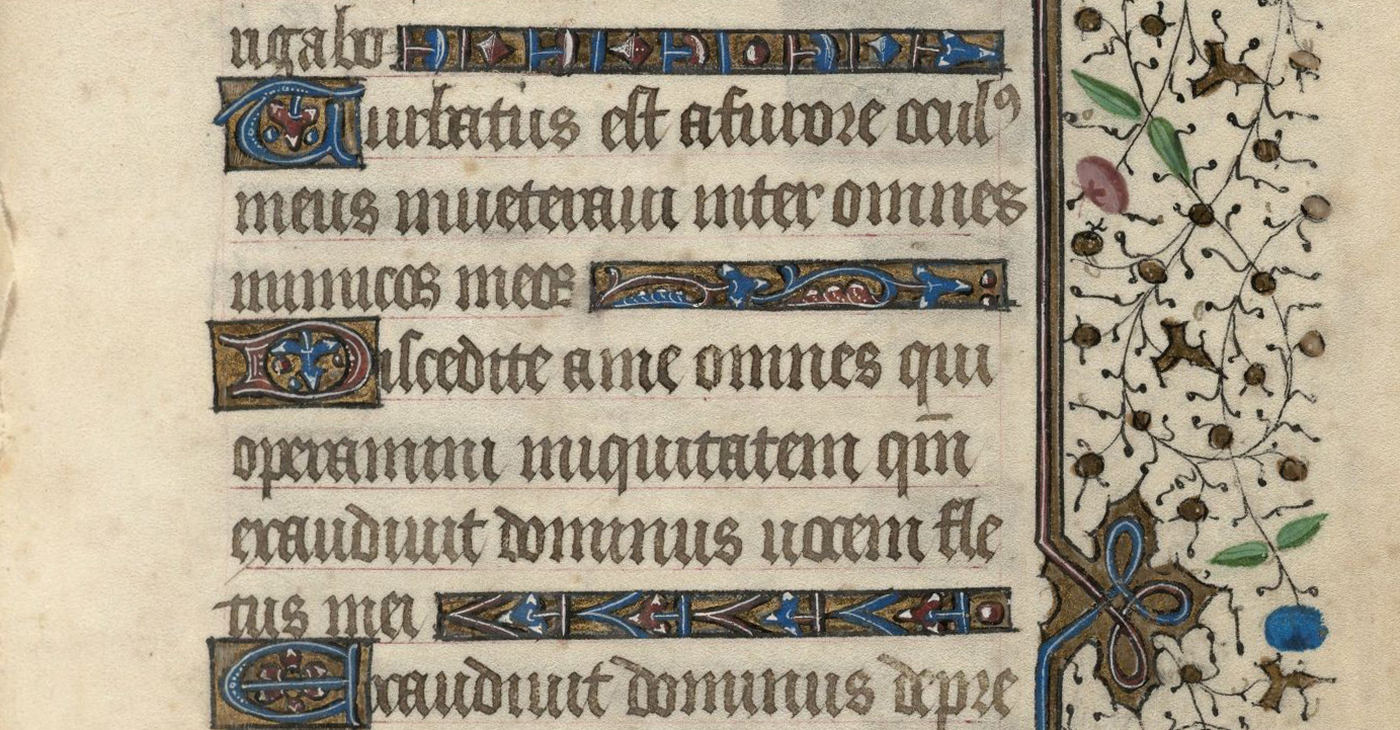 rigabo
Turbatus est a furore ocul⁹
meus inueteraui inter omnes
inimicos meos
Discedite a me omnes qui
operamini iniquitatem qm̄
exaudiuit dominus uocem fle
tus mei
Exaudiuit dominus depre